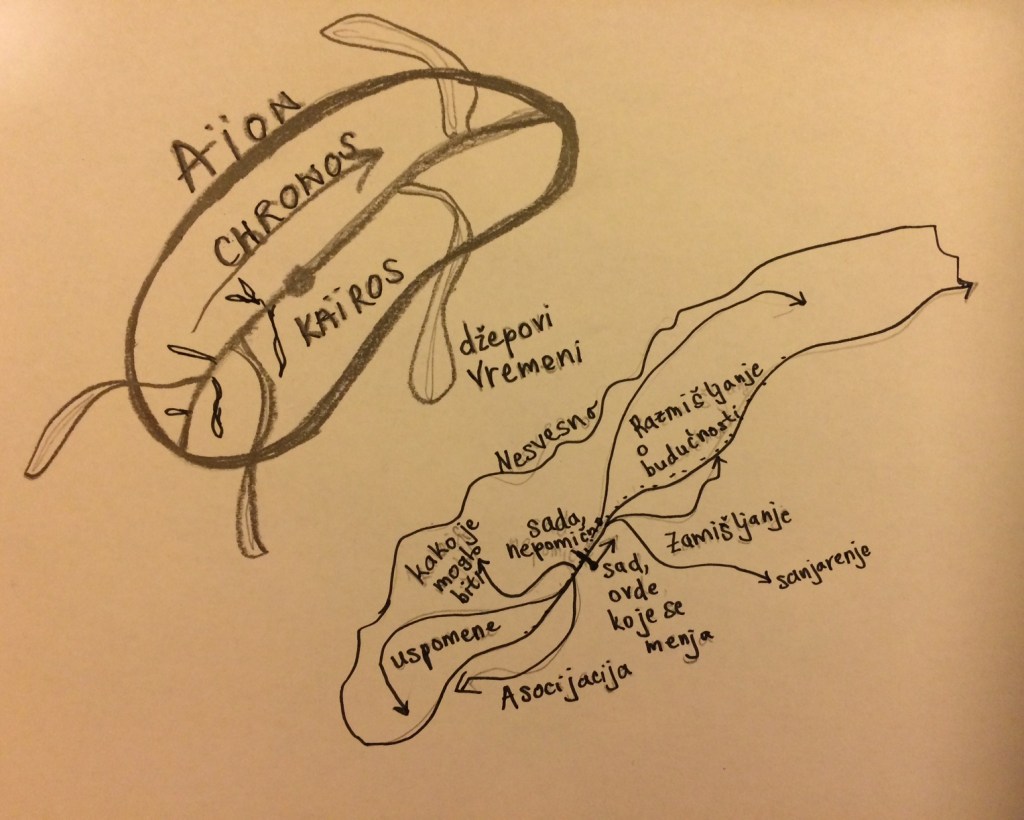 Aïon
CHRONOS
KAÏROS
džepovi
vremeni
Nesvesno
Razmišljanje
o
budućnosti
sada,
nepomično
kako je
moglo
biti
Zamišljanje
sanjarenje
sad,
ovde
koje se
menja
uspomene
Asocijacija